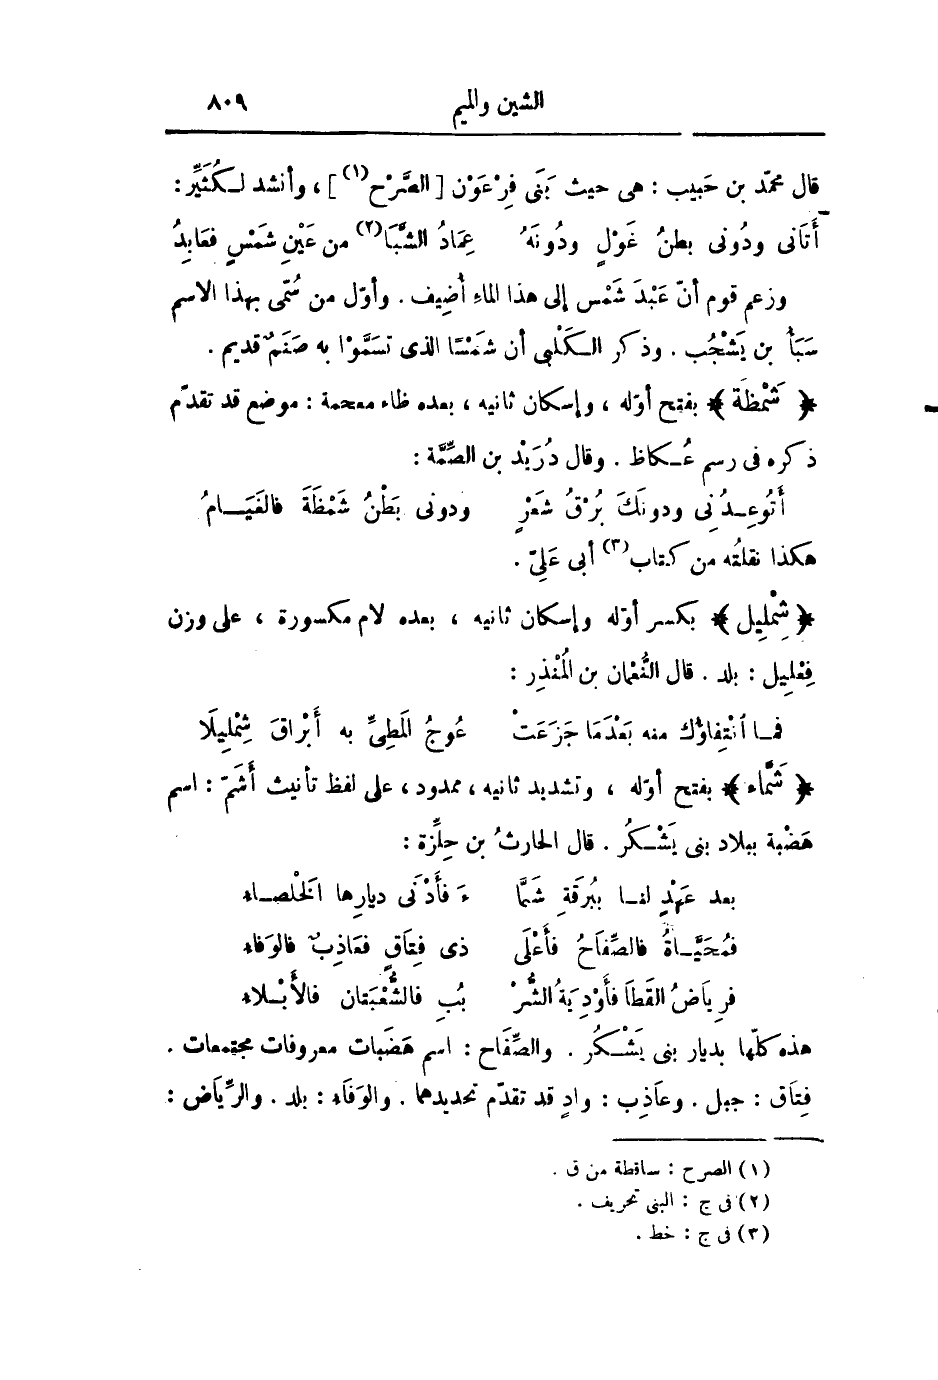 الشين والميم ٨٠٩
قال محمّد بن حَبيب : هى حيث بَنَى فِرْعَوْن [ الصَّرْح(١) ] ، وأنشد لـكُثَيِّر :
أَتَانى ودُونى بطنُ غَوْلٍ ودُونَهُ عِمَادُ الشَّبَا(٢) من عَيْنِ شَمْسٍ فعَابِدُ
وزعم قوم أنّ عَبْدَ شَمْس إلى هذا الماءِ أُضِيف . وأوّل من سُمّى بهذا الاسم
سَبَأُ بن يَشْجُب . وذكر الـكَلْبى أن شَمْسًا الذى تَسَمَّوْا به صَنَمٌ قديم .
﴿ شَمْظَة ﴾ بفتح أوّله ، وإسكان ثانيه ، بعده ظاء معجمة : موضع قد تقدّم
ذكره فى رسم عُـكاظ . وقال دُرَيْد بن الصِّمَّة :
أَتُوعِـدُنِى ودونَكَ بُرْقُ شَعْرٍ ودونى بَطْنُ شَمْظَةَ فالغَيَـامُ
هكذا نقلتُه من كتاب(٣) أبى عَلِىّ .
﴿ شِمْلِيل ﴾ بكسر أوّله وإسكان ثانيه ، بعده لام مكسورة ، على وزن
فِعْلِيل : بلد . قال النُّعْمان بن المُنْذِر :
فمـا ٱنْتِفاؤُك منه بَعْدَمَا جَزَعَتْ عُوجُ المَطِىِّ به أَبْرَاقَ شِمْلِيلَا
﴿ شَمَّاء ﴾ بفتح أوّله ، وتشديد ثانيه ، ممدود ، على لفظ تأنيث أَشَمّ : اسم
هَضْبة ببلاد بنى يَشْـكُر . قال الحارثُ بن حِلِّزة :
بعد عَهْدٍ لنـا بِبُرقَةِ شَمَّا ءَ فأَدْنَى ديارِها الخْلصـاء
فمُحَيَّـاةُ فالصِّفاحُ فأَعْلَى ذى فِتَاقٍ فعَاذِبٌ فالوَفاء
فرِيَاضُ القَطَا فأَوْدِيَةُ الشُّرْ بُبِ فالشُّعْبَتان فالأَبْـلاء
هذه كلّها بديار بنى يَشْـكُر . والصِّفَاح : اسم هَضَبات معروفات مجتمعات .
فِتَاق : جبل . وعَاذِب : وادٍ قد تقدّم تحديدها . والوَفَاء : بلد . والرِّيَاض :
(١) الصرح : ساقطة من ق .
(٢) فى ج : البنى تحريف .
(٣) فى ج : خط .